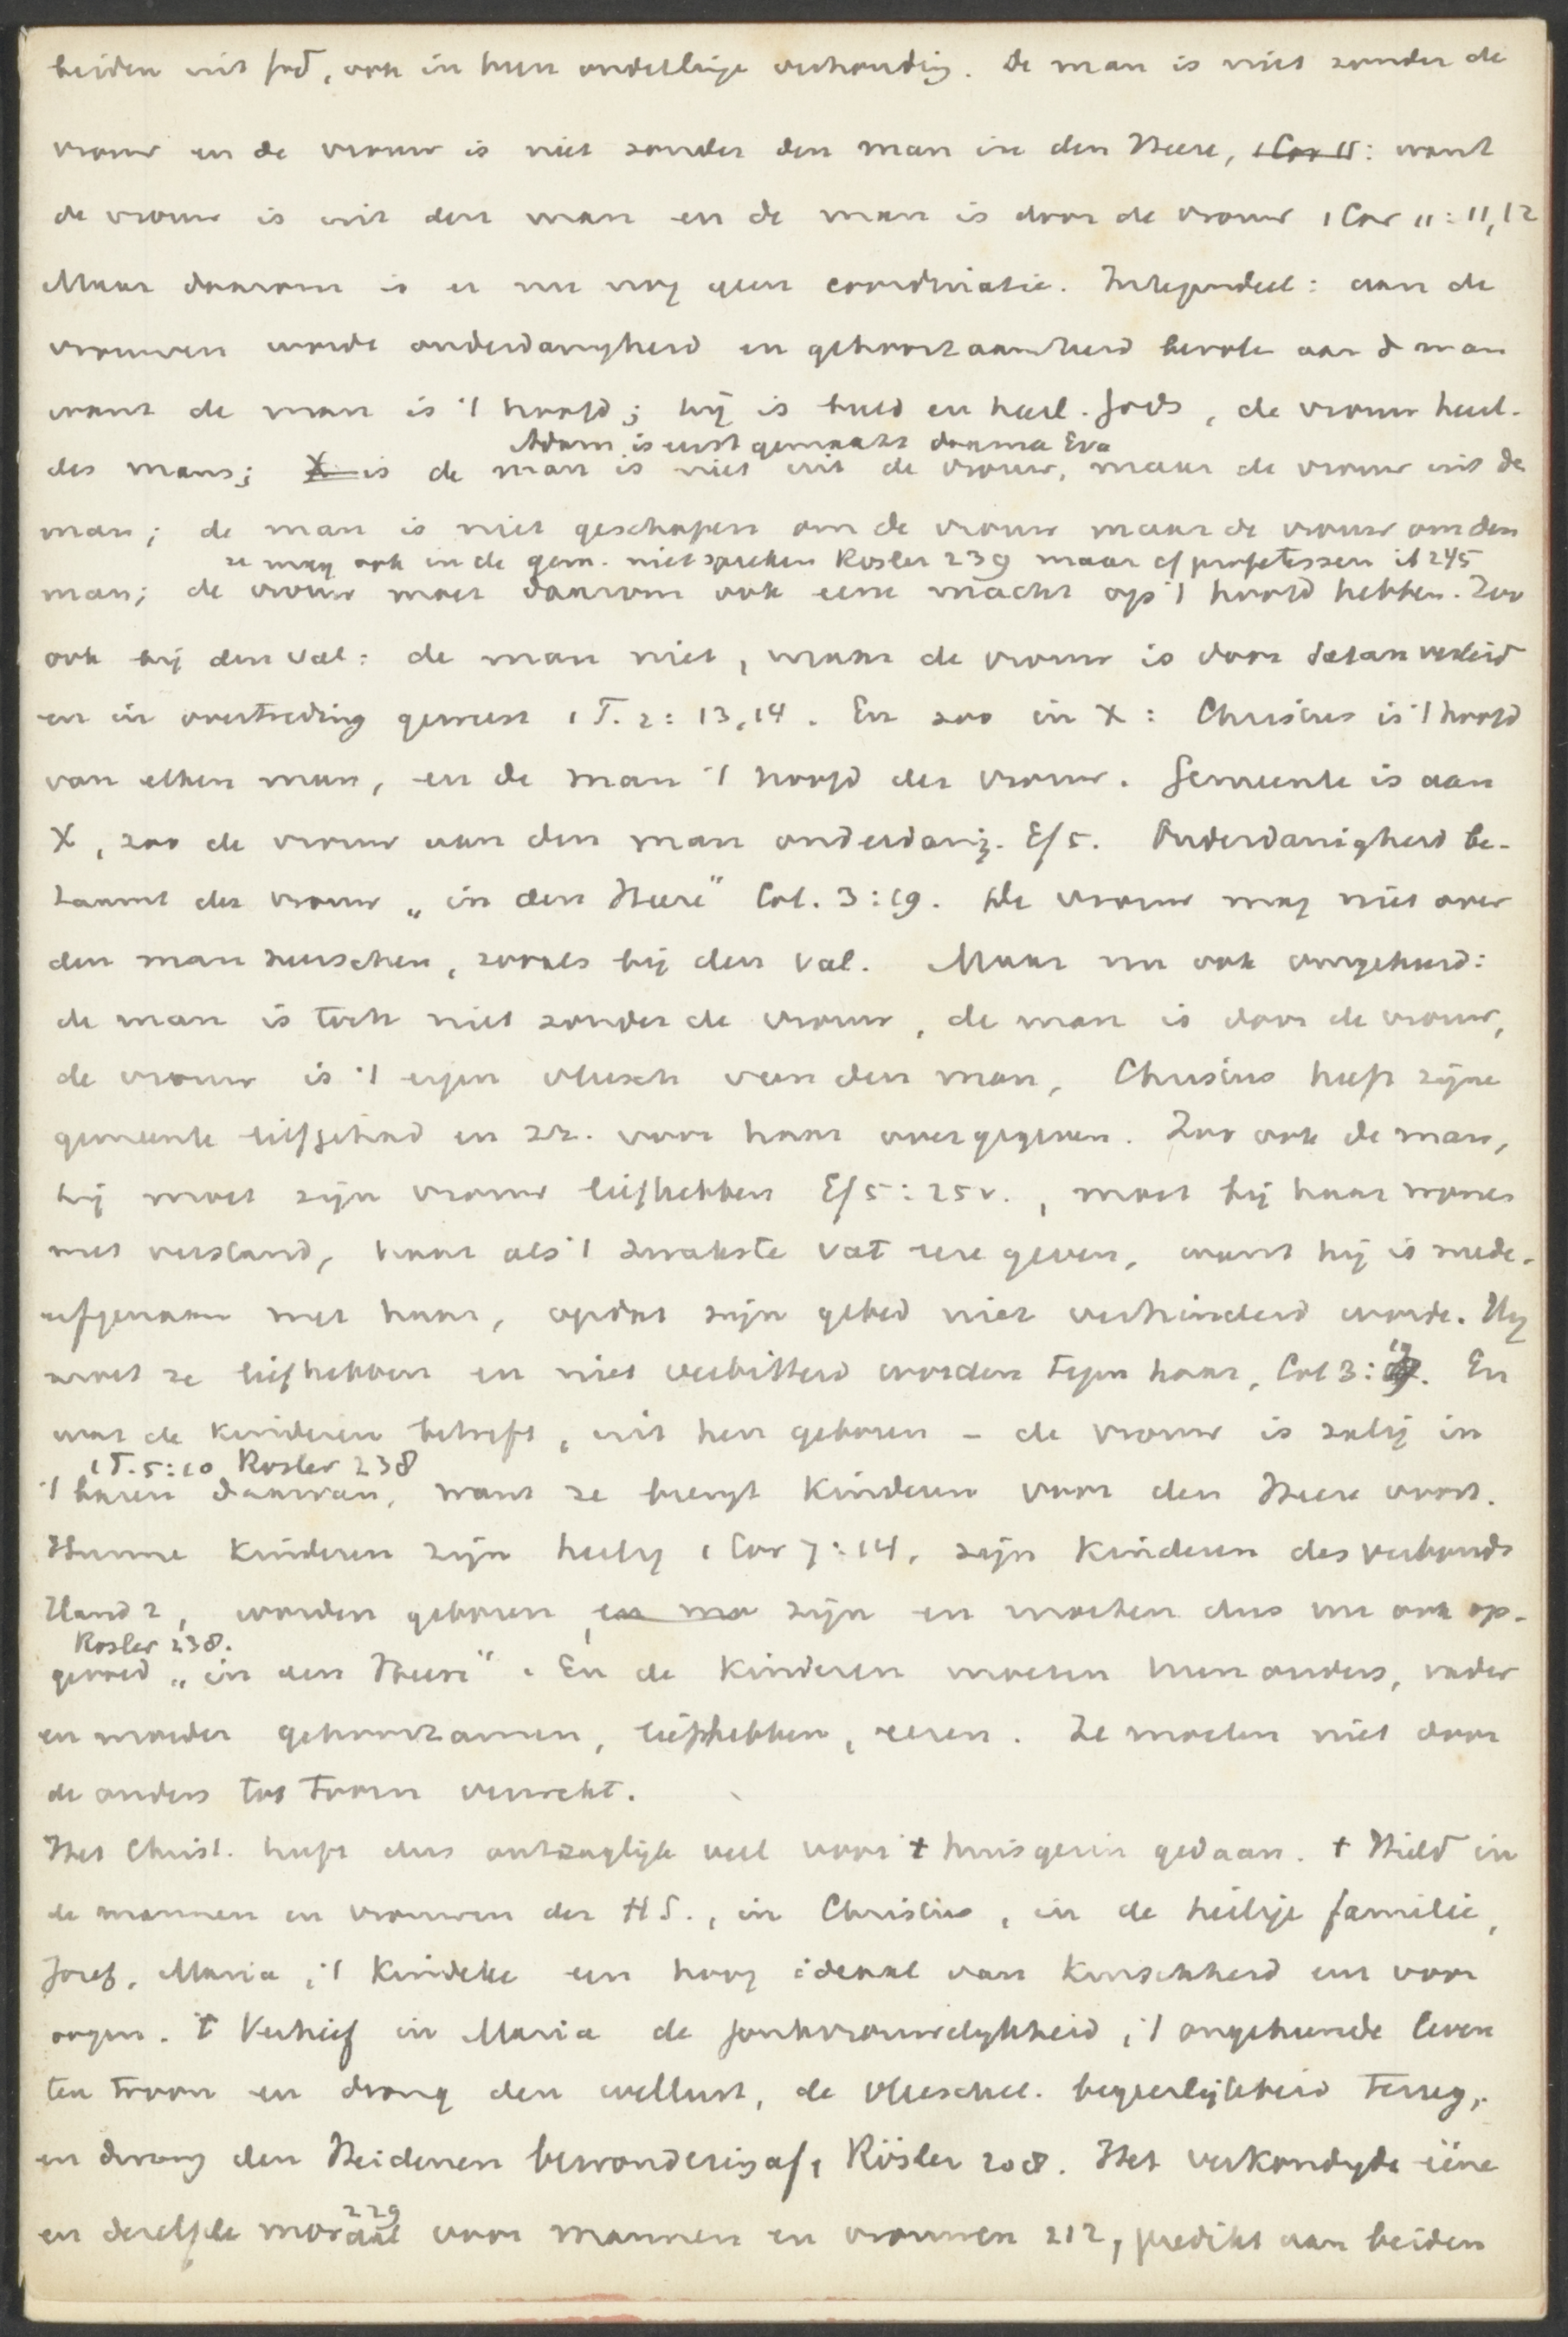 beiden uit God, ook in hun onderlinge verhouding. De man is niet zonder de
vrouw en de vrouw is niet zonder den man in den Heere, 1 Cor 11: want
de vrouw is uit den man en de man is door de vrouw 1 Cor 11:11,12
Maar daarom is er nu nog geen coordinatie. Integendeel: aan de
vrouwen wordt onderdanigheid en gehoorzaamheid bevolen aan d man
want de man is 't hoofd; hij is beeld en heerl. Gods, de vrouw heerl.
Adam is eerst gemaakt daarna Eva
des mans; X is de man is niet uit de vrouw, maar de vrouw uit de
man; de man is niet geschapen om de vrouw maar de vrouw om den
ze mag ook in de gem. niet spreken Rosler 239 maar cf profetessen ib 245
man; de vrouw moet daarom ook eene macht op 't hoofd hebben. Zoo
ook bij den val: de man niet, maar de vrouw is door Satan verleid
en in overtreding geweest 1 T. 2:13,14. En zoo in X: Christus is 't hoofd
van elken man, en de man 't hoofd der vrouw. Gemeente is aan
X, zoo de vrouw aan den man onderdanig. Ef 5. Onderdanigheid be-
taamt der vrouw „in den Heere" Col. 3:19. De vrouw mag niet over
den man heerschen, zooals bij den val. Maar nu ook omgekeerd:
de man is toch niet zonder de vrouw, de man is door de vrouw,
de vrouw is 't eigen vleesch van den man, Christus heeft zijne
gemeente liefgehad en zz. voor haar overgegeven. Zoo ook de man,
hij moet zijn vrouw liefhebben Ef 5:25v., moet bij haar wonen
met verstand, haar als 't zwakste vat eere geven, want hij is mede-
erfgenaam met haar, opdat zijn gebed niet verhinderd worde. Hij
moet ze liefhebben en niet verbitterd worden tegen haar, Col 3:19. En
wat de kinderen betreft, uit hen geboren - de vrouw is zalig in
1 T. 5:10 Rosler 238
't baren daarvan, want ze brengt kinderen voor den Heere voort.
Hunne kinderen zijn heilig 1 Cor 7:14, zijn kinderen des verbonds
Hand 2, worden geboren, en mo zijn en moeten dus nu ook op-
Rosler 238.
gevoed „in den Heere". En de kinderen moeten hun ouders, vader
en moeder gehoorzamen, liefhebben, eeren. Ze moeten niet door
de ouders tot toorn verwekt.
Het Christ. heeft dus ontzaglijk veel voor t huisgezin gedaan. t Hield in
de mannen en vrouwen der H S., in Christus, in de heilige familie,
Jozef, Maria, 't kindeke een hoog ideaal van kuischheid ons voor
oogen. 't Verhief in Maria de jonkvrouwelykheid, 't ongehuwde leven
ten troon en drong den wellust, de vleeschel. begeerlijkheid terug,
en dwong den Heidenen bewondering af, Rösler 208. Het verkondigde ééne
229
en dezelfde moraal voor mannen en vrouwen 212, predikt aan beiden